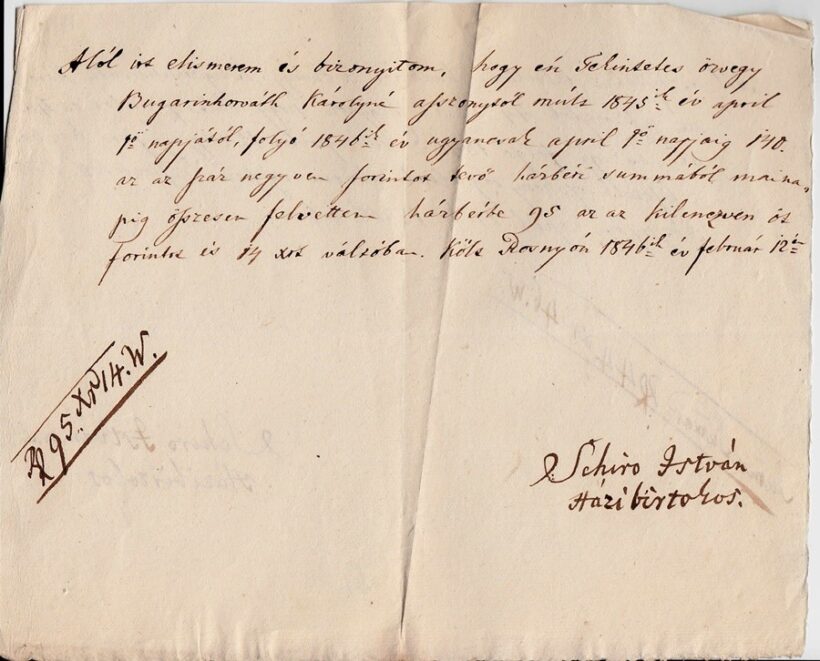 Alól irt elismerem és bizonyitom, hogy én Tekintetes özvegy
Bugarinhorváth Károlyné asszonytól múlt 1845ik év april
1ő napjától, folyó 1846ik év ugyancsak april 1ő napjaig 140.
az az száz negyven forintot tevő házbéri summából maina,
pig öszvesen felvettem házbérbe 95 az az kilenczven öt
forintot és 14 xrt váltóban. Költ Rosnyón 1846ik év február 12én
95 Xr 14. W.
Schiro István
Házi birtokos.